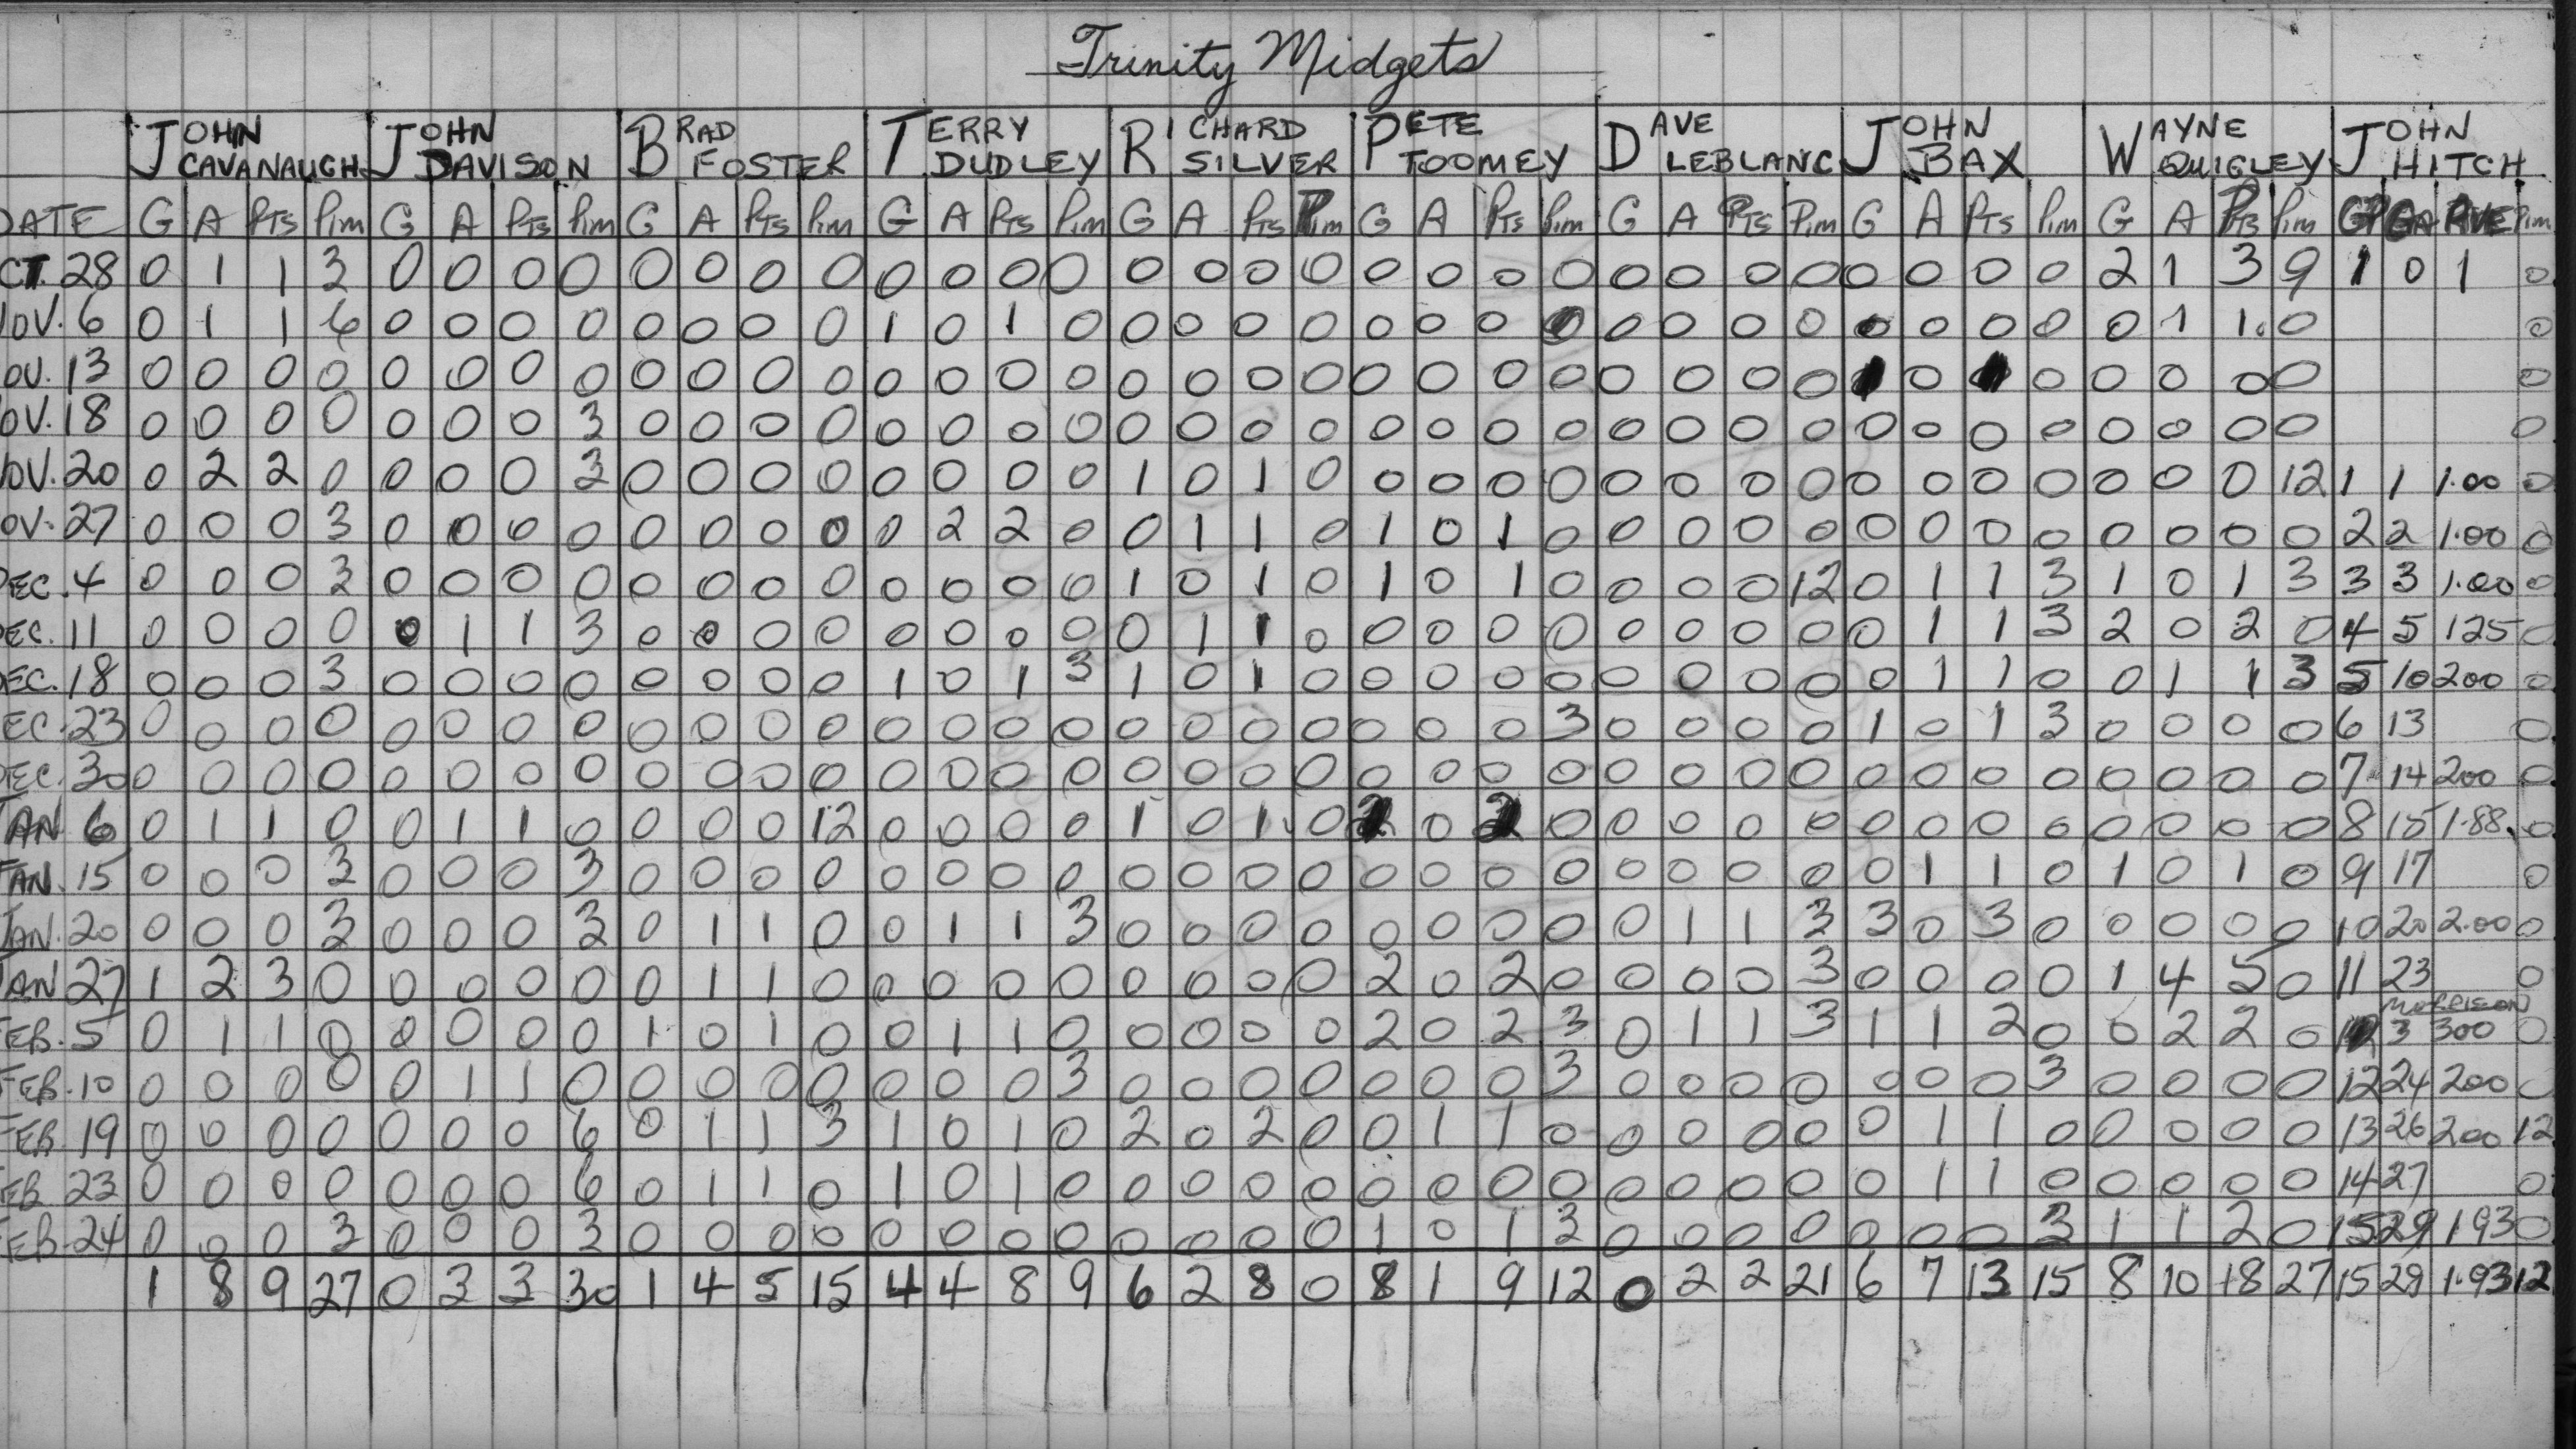 Trinity Midgets
JOHN CAVANAUGH JOHN DAVISON BRAD FOSTER TERRY DUDLEY RICHARD SILVER PETE TOOMEY DAVE LEBLANC JOHN BAX WAYNE QUIGLEY JOHN HITCH
DATE G A PTS Pim G A PTS Pim G A PTS Pim G A PTS Pim G A PTS Pim G A PTS Pim G A PTS Pim G A PTS Pim G A PTS Pim GP GA AVE Pim
CT. 28 0 1 1 3 0 0 0 0 0 0 0 0 0 0 0 0 0 0 0 0 0 0 0 0 0 0 0 0 0 0 0 0 2 1 3 9 1 0 1 0
OV. 6 0 1 1 6 0 0 0 0 0 0 0 0 1 0 1 0 0 0 0 0 0 0 0 0 0 0 0 0 0 0 0 0 0 1 1 0 0
OV. 13 0 0 0 0 0 0 0 0 0 0 0 0 0 0 0 0 0 0 0 0 0 0 0 0 0 0 0 0 0 0 0 0 0 0 0
OV. 18 0 0 0 0 0 0 0 3 0 0 0 0 0 0 0 0 0 0 0 0 0 0 0 0 0 0 0 0 0 0 0 0 0 0 0 0 0
OV. 20 0 2 2 0 0 0 0 3 0 0 0 0 0 0 0 0 1 0 1 0 0 0 0 0 0 0 0 0 0 0 0 0 0 0 0 12 1 1 1.00 0
OV. 27 0 0 0 3 0 0 0 0 0 0 0 0 0 2 2 0 0 1 1 0 1 0 1 0 0 0 0 0 0 0 0 0 0 0 0 0 2 2 1.00 0
EC. 4 0 0 0 3 0 0 0 0 0 0 0 0 0 0 0 0 1 0 1 0 1 0 1 0 0 0 0 12 0 1 1 3 1 0 1 3 3 3 1.00 0
EC. 11 0 0 0 0 0 1 1 3 0 0 0 0 0 0 0 0 0 1 1 0 0 0 0 0 0 0 0 0 0 1 1 3 2 0 2 0 4 5 125 0
EC. 18 0 0 0 3 0 0 0 0 0 0 0 0 1 0 1 3 1 0 1 0 0 0 0 0 0 0 0 0 0 1 1 0 0 1 1 3 5 10 200 0
EC. 23 0 0 0 0 0 0 0 0 0 0 0 0 0 0 0 0 0 0 0 0 0 0 0 3 0 0 0 0 1 0 1 3 0 0 0 0 6 13 0
EC. 30 0 0 0 0 0 0 0 0 0 0 0 0 0 0 0 0 0 0 0 0 0 0 0 0 0 0 0 0 0 0 0 0 0 0 0 0 7 14 200 0
JAN 6 0 1 1 0 0 1 1 0 0 0 0 12 0 0 0 0 1 0 1 0 0 0 0 0 0 0 0 0 0 0 0 0 0 0 8 15 1.88 0
JAN. 15 0 0 0 3 0 0 0 3 0 0 0 0 0 0 0 0 0 0 0 0 0 0 0 0 0 0 0 0 0 1 1 0 1 0 1 0 9 17 0
JAN. 20 0 0 0 3 0 0 0 3 0 1 1 0 0 1 1 3 0 0 0 0 0 0 0 0 0 1 1 3 3 0 3 0 0 0 0 0 10 20 2.00 0
JAN 27 1 2 3 0 0 0 0 0 0 1 1 0 0 0 0 0 0 0 0 0 2 0 2 0 0 0 0 3 0 0 0 0 1 4 5 0 11 23 0
MORRISON
FEB. 5 0 1 1 0 0 0 0 0 1 0 1 0 0 1 1 0 0 0 0 0 2 0 2 3 0 1 1 3 1 1 2 0 0 2 2 0 3 300 0
FEB. 10 0 0 0 0 0 1 1 0 0 0 0 0 0 0 0 3 0 0 0 0 0 0 0 3 0 0 0 0 0 0 0 3 0 0 0 0 12 24 200 0
FEB 19 0 0 0 0 0 0 0 6 0 1 1 3 1 0 1 0 2 0 2 0 0 1 1 0 0 0 0 0 0 1 1 0 0 0 0 0 13 26 200 12
EB 23 0 0 0 0 0 0 0 6 0 1 1 0 1 0 1 0 0 0 0 0 0 0 0 0 0 0 0 0 0 1 1 0 0 0 0 0 14 27 0
EB. 24 0 0 0 3 0 0 0 3 0 0 0 0 0 0 0 0 0 0 0 0 1 0 1 3 0 0 0 0 0 0 0 3 1 1 2 0 15 29 193 0
1 8 9 27 0 3 3 30 1 4 5 15 4 4 8 9 6 2 8 0 8 1 9 12 0 2 2 21 6 7 13 15 8 10 18 27 15 29 1.93 12